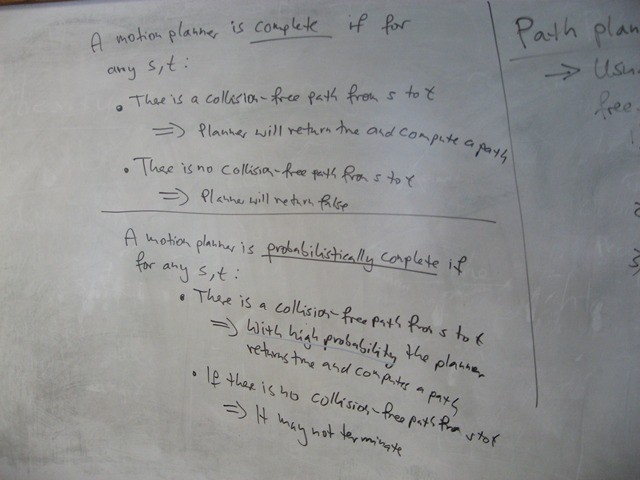 A motion planner is complete if for
any s,t:
• There is a collision-free path from s to t
=> Planner will return true and compute a path
• There is no collision-free path from s to t
=> Planner will return false
A motion planner is probabilistically complete if
for any s,t:
• There is a collision-free path from s to t
=> With high probability the planner
returns true and computes a path
• If there is no collision-free path from s to t
=> It may not terminate
Path plan
-> Usin
free-
1.
3,